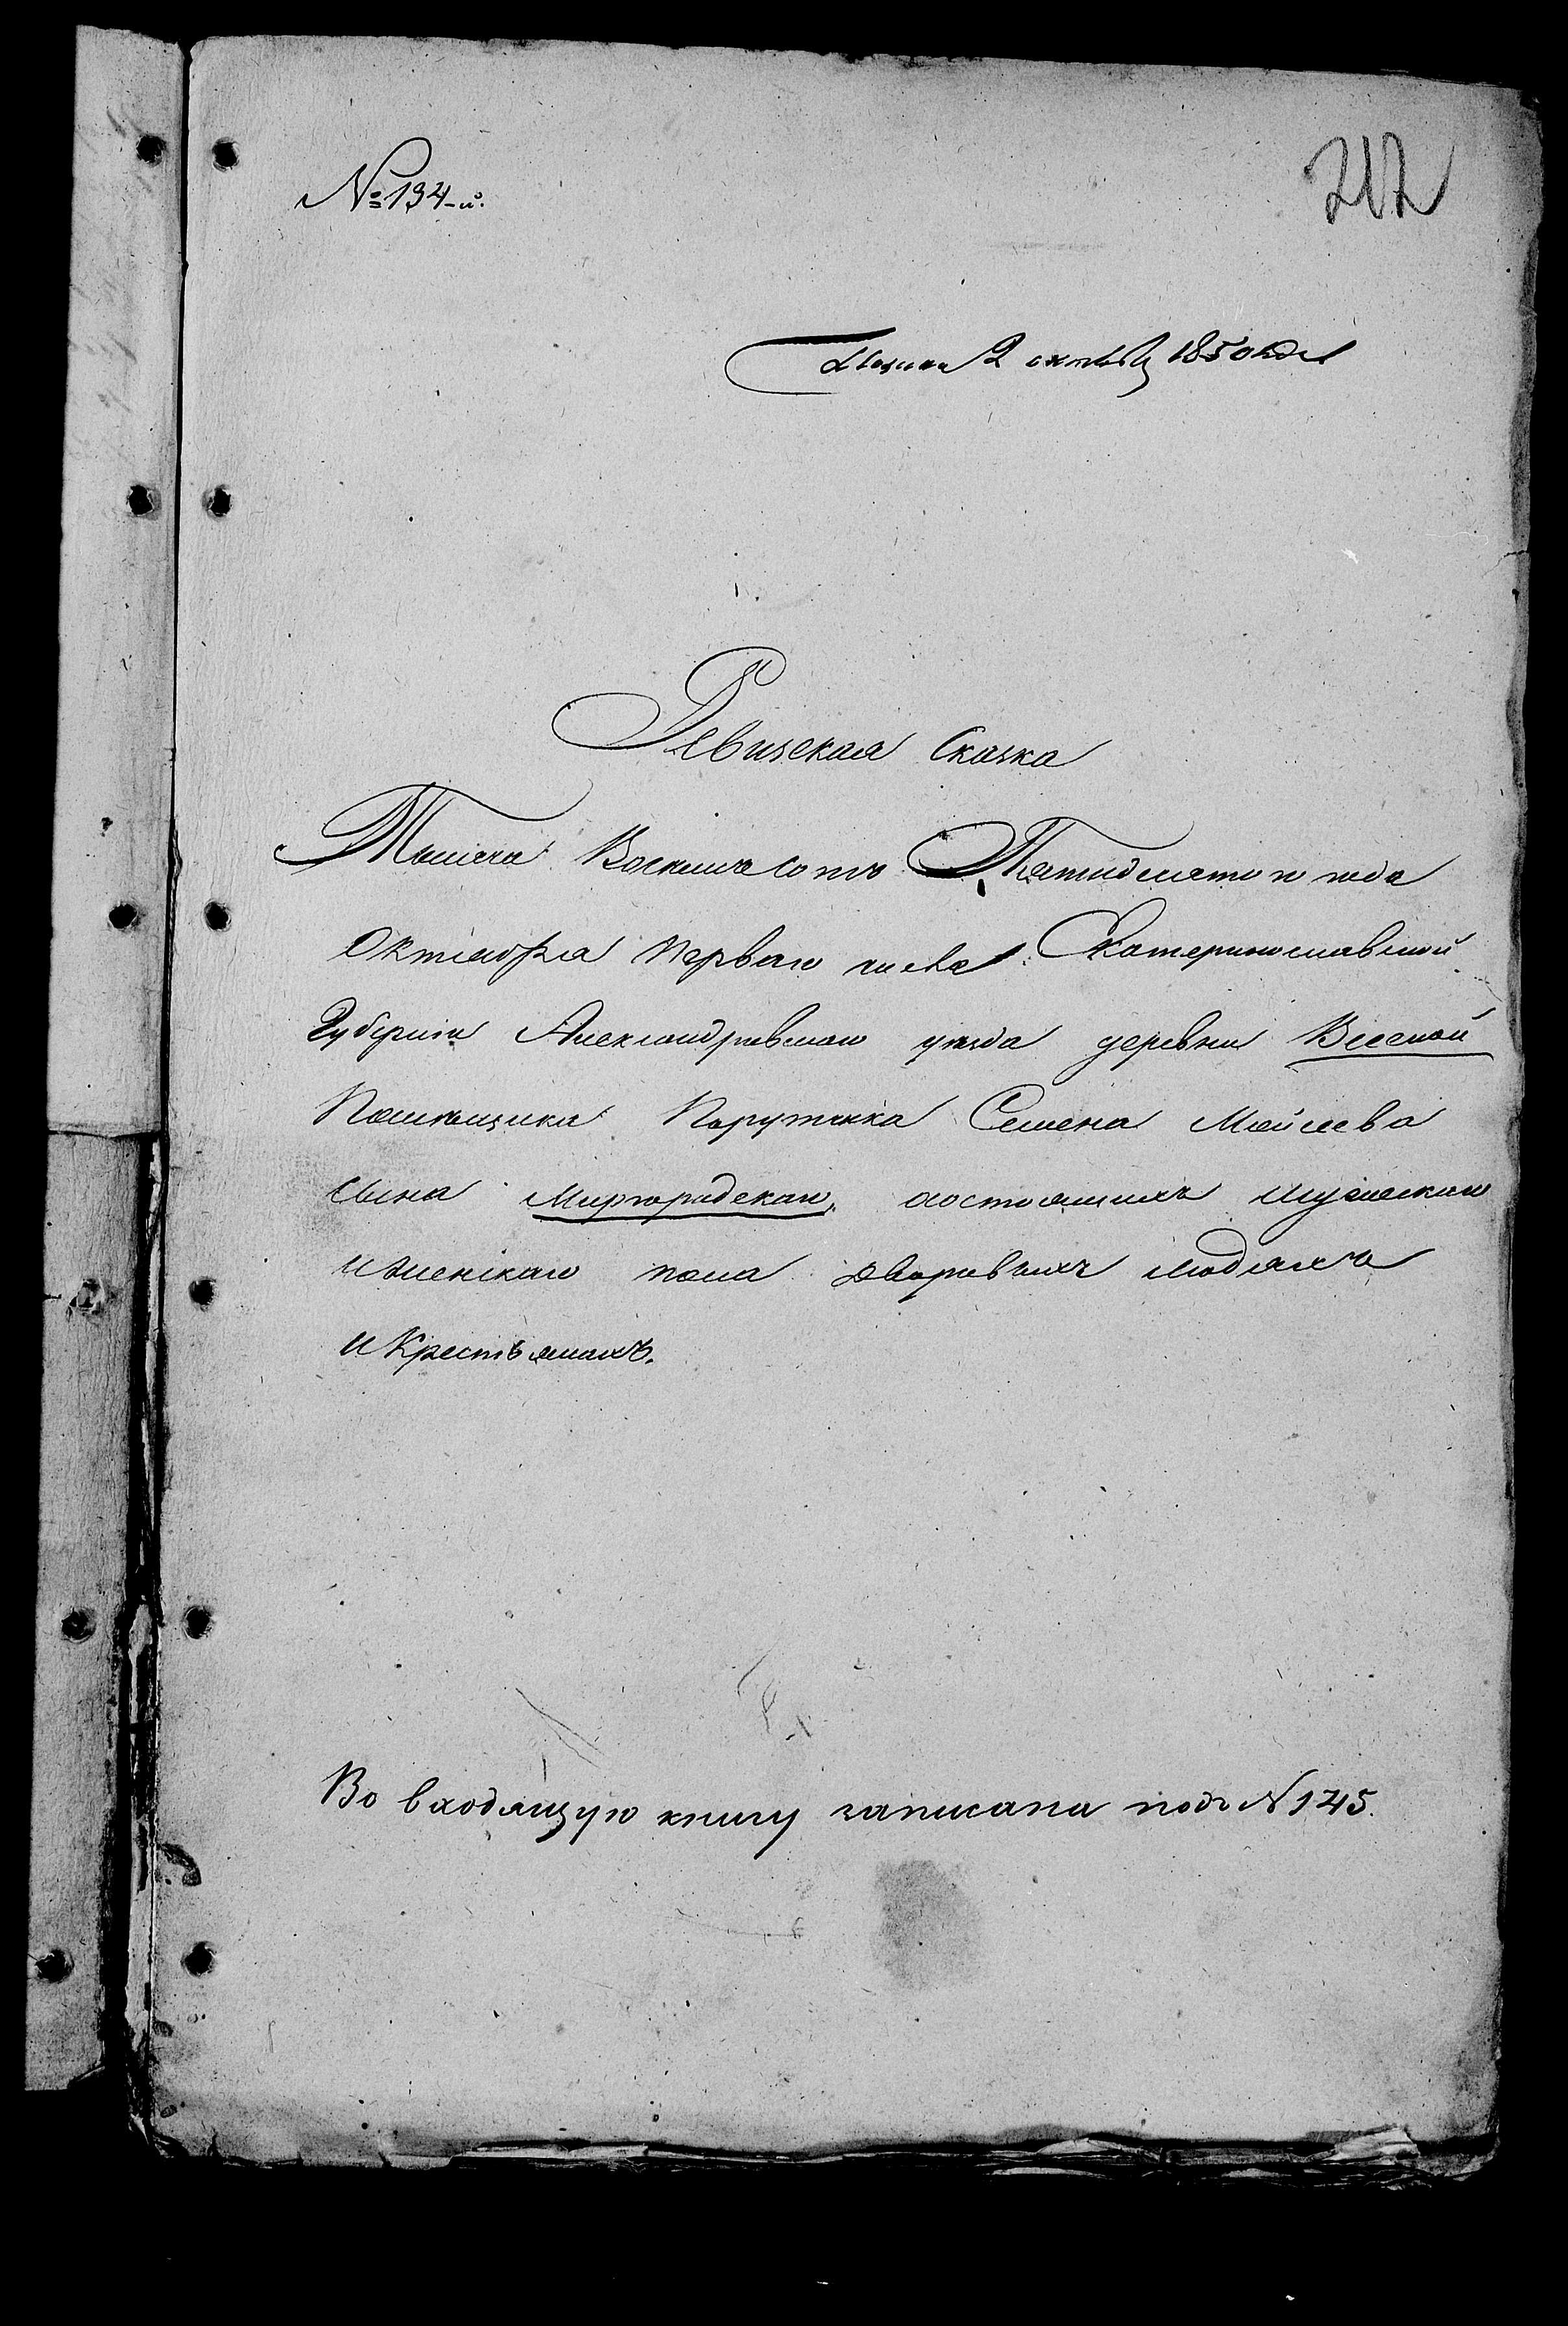 № 194-й.
212
2 октября 1850 года
Ревизская Сказка
Тысяча Восемьсотъ Пятидесятого года
Октября первого числа Екатеринославской
Губернии Александровского уезда деревни Веселой
Помещика Поручика Семена Мойсеева
сына Миргородского, состоящихъ мужеского
и женского пола дворовыхъ людяхъ
и Крестьянахъ.
Во входящую книгу записана подъ № 145.